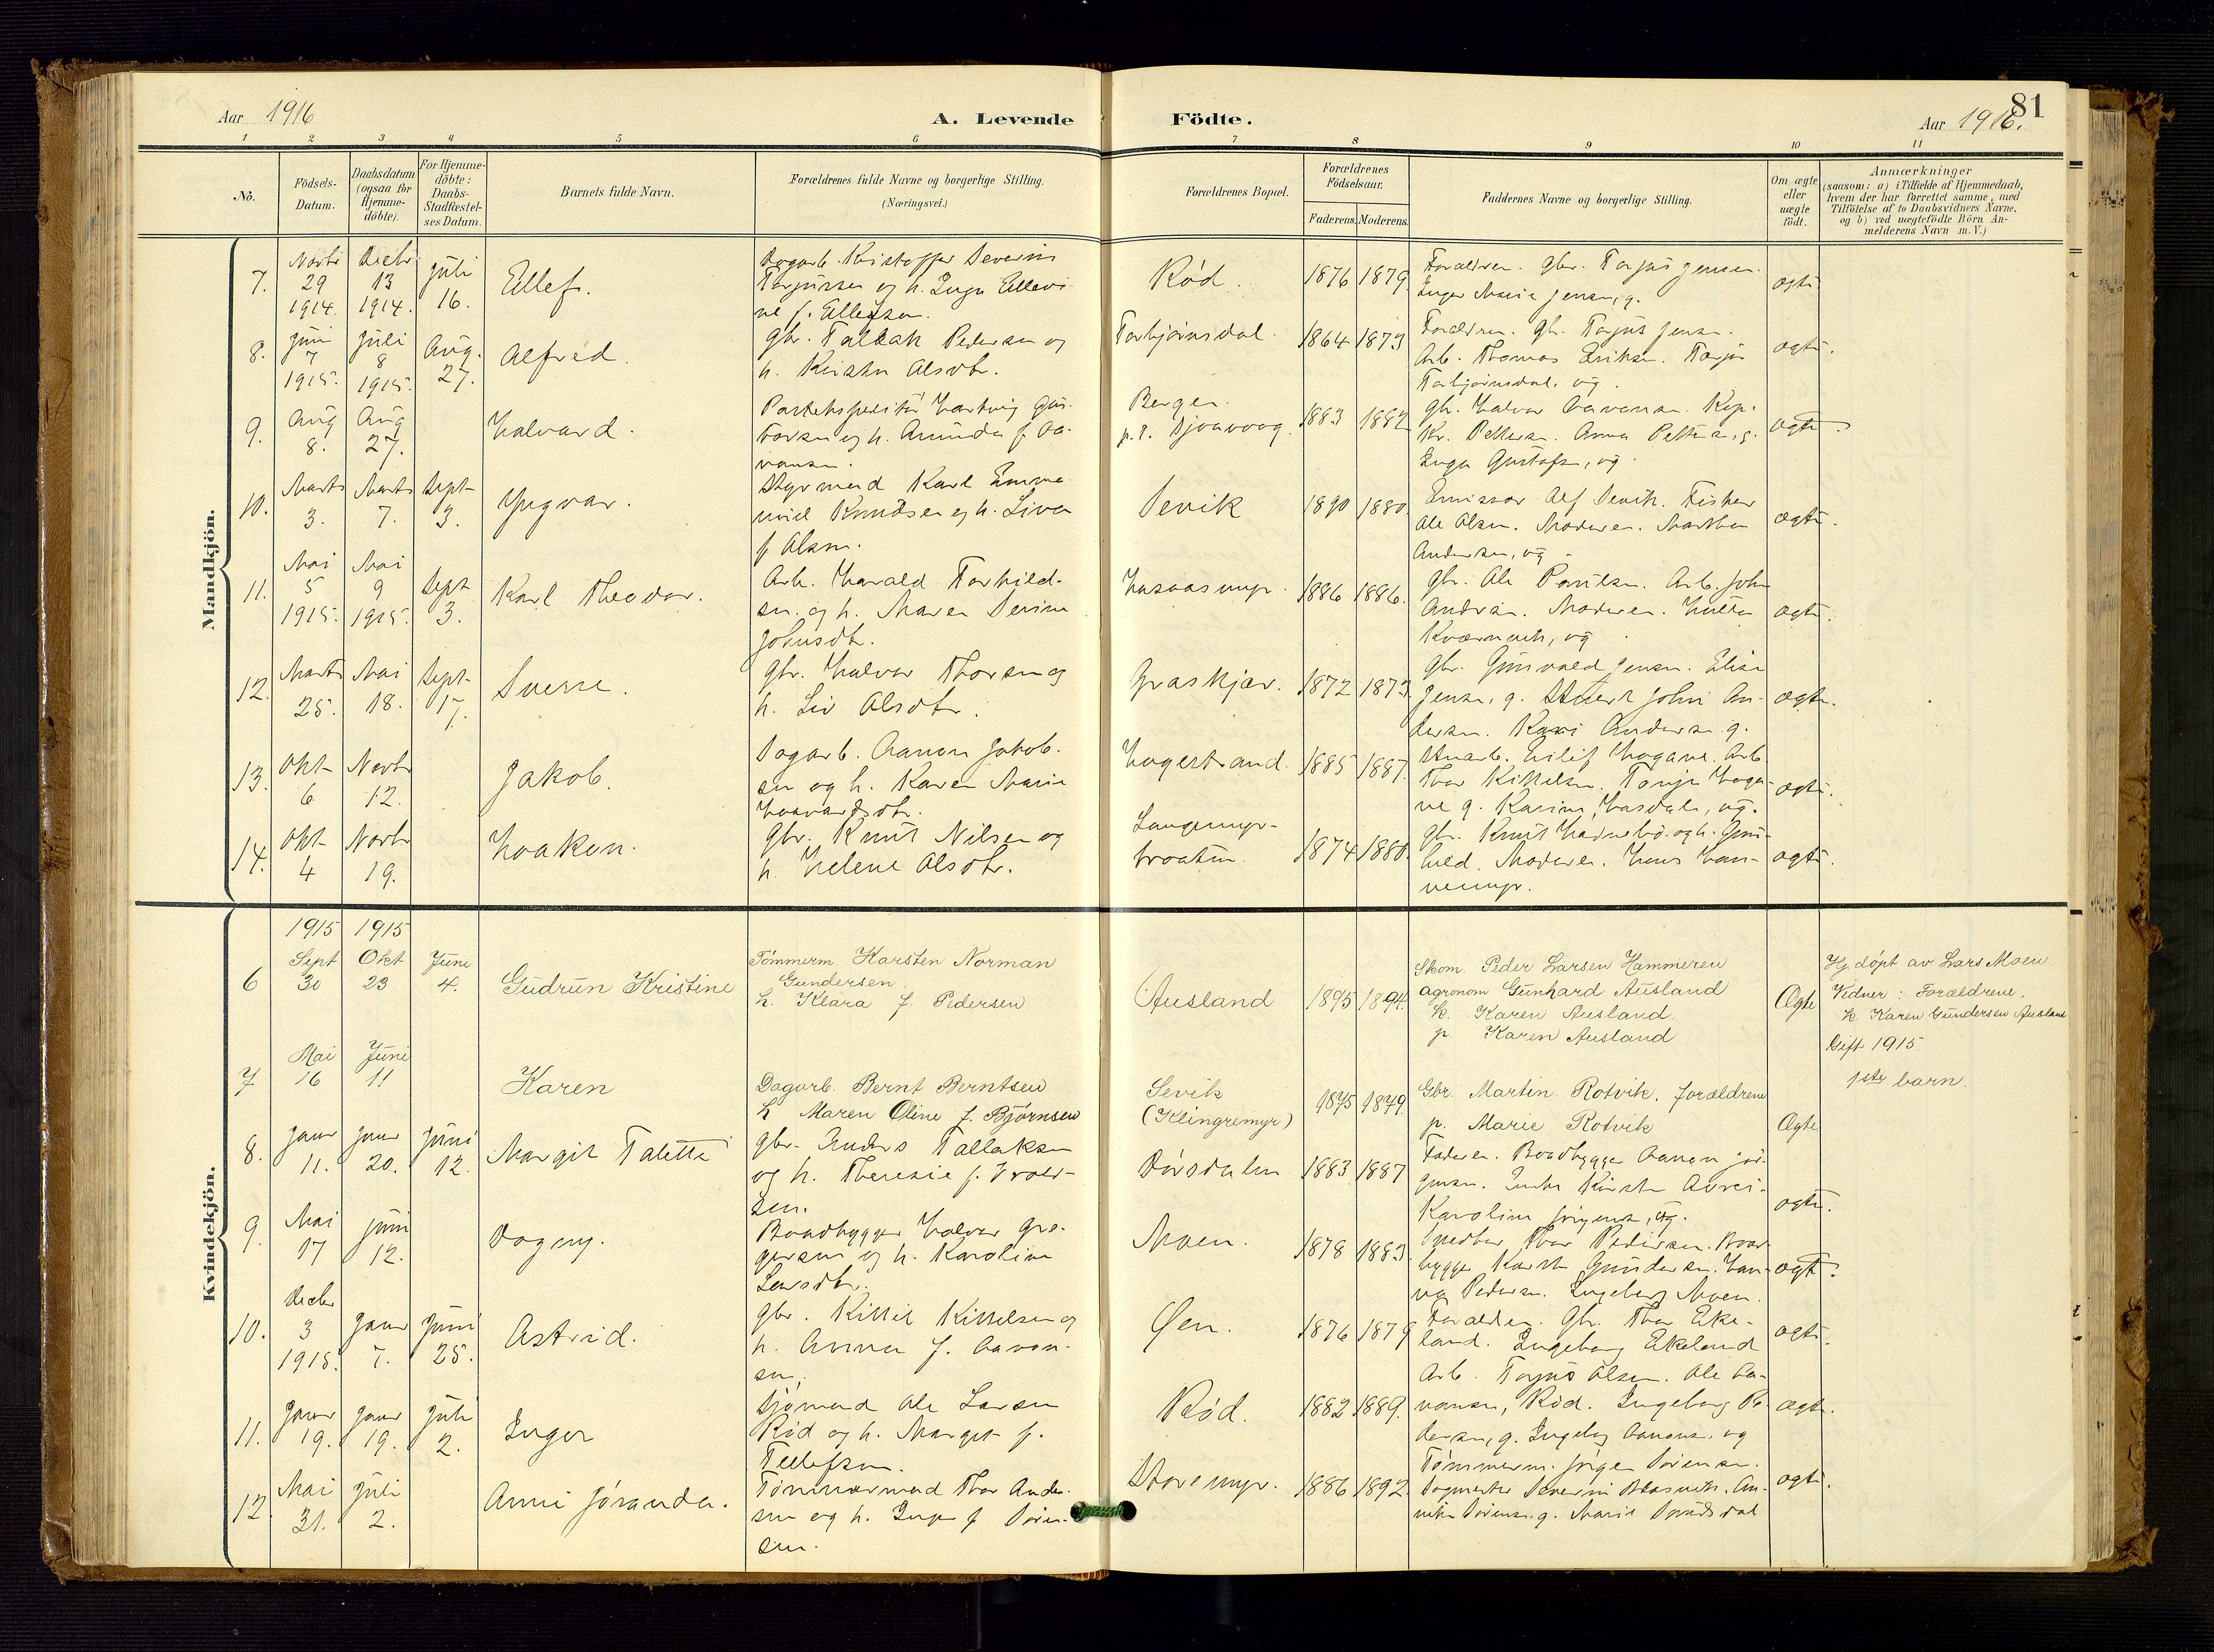 81
Aar 1916
A. Levende
Födte.
Aar 1916.
1 2 3 4 5 6 7 8 9 10 11
No.
Födsels-
Datum.
Daabsdatum
(ogsaa for
Hjemme-
döbte).
For Hjemme-
döbte:
Daabs-
Stadfæstel-
ses Datum.
Barnets fulde Navn.
Forældrenes fulde Navne og borgerlige Stilling.
(Næringsvei.)
Forældrenes Bopæl.
Forældrenes
Födselsaar.
Faderens.
Moderens.
Faddernes Navne og borgerlige Stilling.
Om ægte
eller
uægte
födt.
Anmærkninger
(saasom: a) i Tilfælde af Hjemmedaab,
hvem der har forrettet samme, med
Tilföielse af to Daabsvidners Navne,
og b) ved uægtefödte Börn An-
melderens Navn m. V.)
Mandkjön.
7.
Novbr
29
1914.
Decbr
13
1914.
Juli
16.
Ellef.
Dagarb. Kristoffer Severin
Terjussen og h. Inga Ellevi-
ne f. Ellefsen.
Röd.
1876
1879.
Forældren. Gbr. Torjus Jensen.
Inger Marie Jensen, g.
ægte.
8.
Juni
7
1915.
Juli
8
1915.
Aug.
27.
Alfred.
Gbr. Tallak Pedersen og
h. Kirsten Olsdtr.
Torbjörnsdal.
1864
1873
Forældren. Gbr. Torjus Jensen.
Arb. Thomas Eriksen.
Torbjörnsdal, ug.
ægte.
9.
Aug
8.
Aug
27.
Halvard.
Hartvig Gus-
tavsen og h. Amunda f. Aa-
nonsen.
Bergen
1883
1882
Gbr. Halvor Aanonsen.
Kr. Pettersen. Anna Pettersen, g.
Inga Gustafsen, ug.
ægte.
10.
Marts
3.
Marts
7.
Sept
3.
Yngvar.
Styrmand Karl Emma-
nuel Knudsen og h. Lina
f. Olsen.
Sevik
1890
1880.
Emissær Alf Sevik. Fisker
Ole Olsen. Moderen. Marthe
Andersen, ug.
ægte.
11.
Mai
5
1915.
Mai
9
1915.
Sept
3.
Karl Theodor.
Arb. Harald Torkild-
sen og h. Maren Severine
Johnsdtr.
Haasaasmyr.
1886
1886.
Gbr. Ole Poulsen. Arb. John
Andersen. Moderen. Hulda
Kværnvik, ug
ægte.
12.
Marts
25.
Mai
18.
Sept
17.
Sverre.
Gbr. Halvor Thorsen og
h. Liv Olsdtr.
Graskjær.
1872
1873.
Gbr. Gunvald Jensen. Elise
Jensen, g. John An-
dersen. Kari Andersen g.
ægte.
13.
Okt
6
Novbr
12.
Jakob.
Dagarb. Aanon Jakob-
sen og h. Karen Marie
Haavardsdtr.
Hagestrand.
1885
1887.
Stuarb. Eilif Hagane. Arb.
Thor Kittelsen. Tonje Haga-
ne g. Karine Haasdalen, ug.
ægte.
14.
Okt
4
Novbr
19.
Haakon.
Gbr. Knut Nilsen og
h. Helene Olsdtr.
Langemyr-
braaten.
1874
1880.
Gbr. Knut og h. Gun-
hild. Moderen. Hans Han-
nemyr.
ægte.
Kvindekjön.
6
1915
Sept
30
1915
Okt
23
Juni
4.
Gudrun Kristine
Tömmerm. Karsten Norman
Gundersen
h. Klara f. Pedersen
Ausland
1895
1894.
Skom. Peder Larsen Hammeren
agronom Gunhard Ausland
k. Karen Ausland
p Karen Ausland
Ægte
Hj. döpt av Lars Moen.
Vidner: Forældrene,
k. Karen Gundersen Ausland
Gift 1915.
1ste barn.
7
Mai
16
Juni
11
Karen
Dagarb. Bernt Berntsen
h Maren Oline f. Björnsen
Sevik
(Klingremyr)
1875
1879.
Gbr. Martin Rotvik, forældrene
p. Marie Rotvik
Ægte
8.
Janr
11.
Janr
20.
Juni
12.
Margit Talette
Gbr. Anders Tallaksen
og h. Theresie f. Ivars-
sen.
Dörsdalen
1883
1887
Faderen. Baadbygger Aanon Jör-
gensen.
Karoline Jörgensen, ug.
ægte.
9.
Mai
17
Juni
12.
Dagny.
Baadbygger Halvor Gre-
gersen og h. Karoline
Larsdtr.
Moen.
1878
1883.
Snedker Thor Pedersen. Baad-
bygger Karsten Gundersen. Han-
na Pedersen. Ingeborg Moen.
ægte.
10.
Decbr
3
1915.
Janr
7.
Juni
25.
Astrid.
Gbr. Kittel Kittelsen og
h. Anna f. Aanon-
sen.
Öen.
1876
1879
Forældren. Gbr. Thor Eke-
land. Ingeborg Ekeland
ægte.
11.
Janr
19.
Janr
19.
Juli
2.
Inger
Sjömand Ole Larsen
Röd og h. Margit f.
Tellefsen.
Röd.
1882
1889.
Arb. Torjus Olsen. Ole Aa-
nonsen, Röd. Ingeborg Pe-
dersen, g. Ingeborg Aanonsen, ug
ægte.
12.
Mai
31.
Juli
2.
Anni Jöranda.
Tömmermand Thor Ander-
sen og h. Inga f. Sören-
sen.
Storemyr.
1886
1892.
Tömmerm. Jörgen Sörensen.
Severin An-
nette Sörensen, g. Marie
ægte.